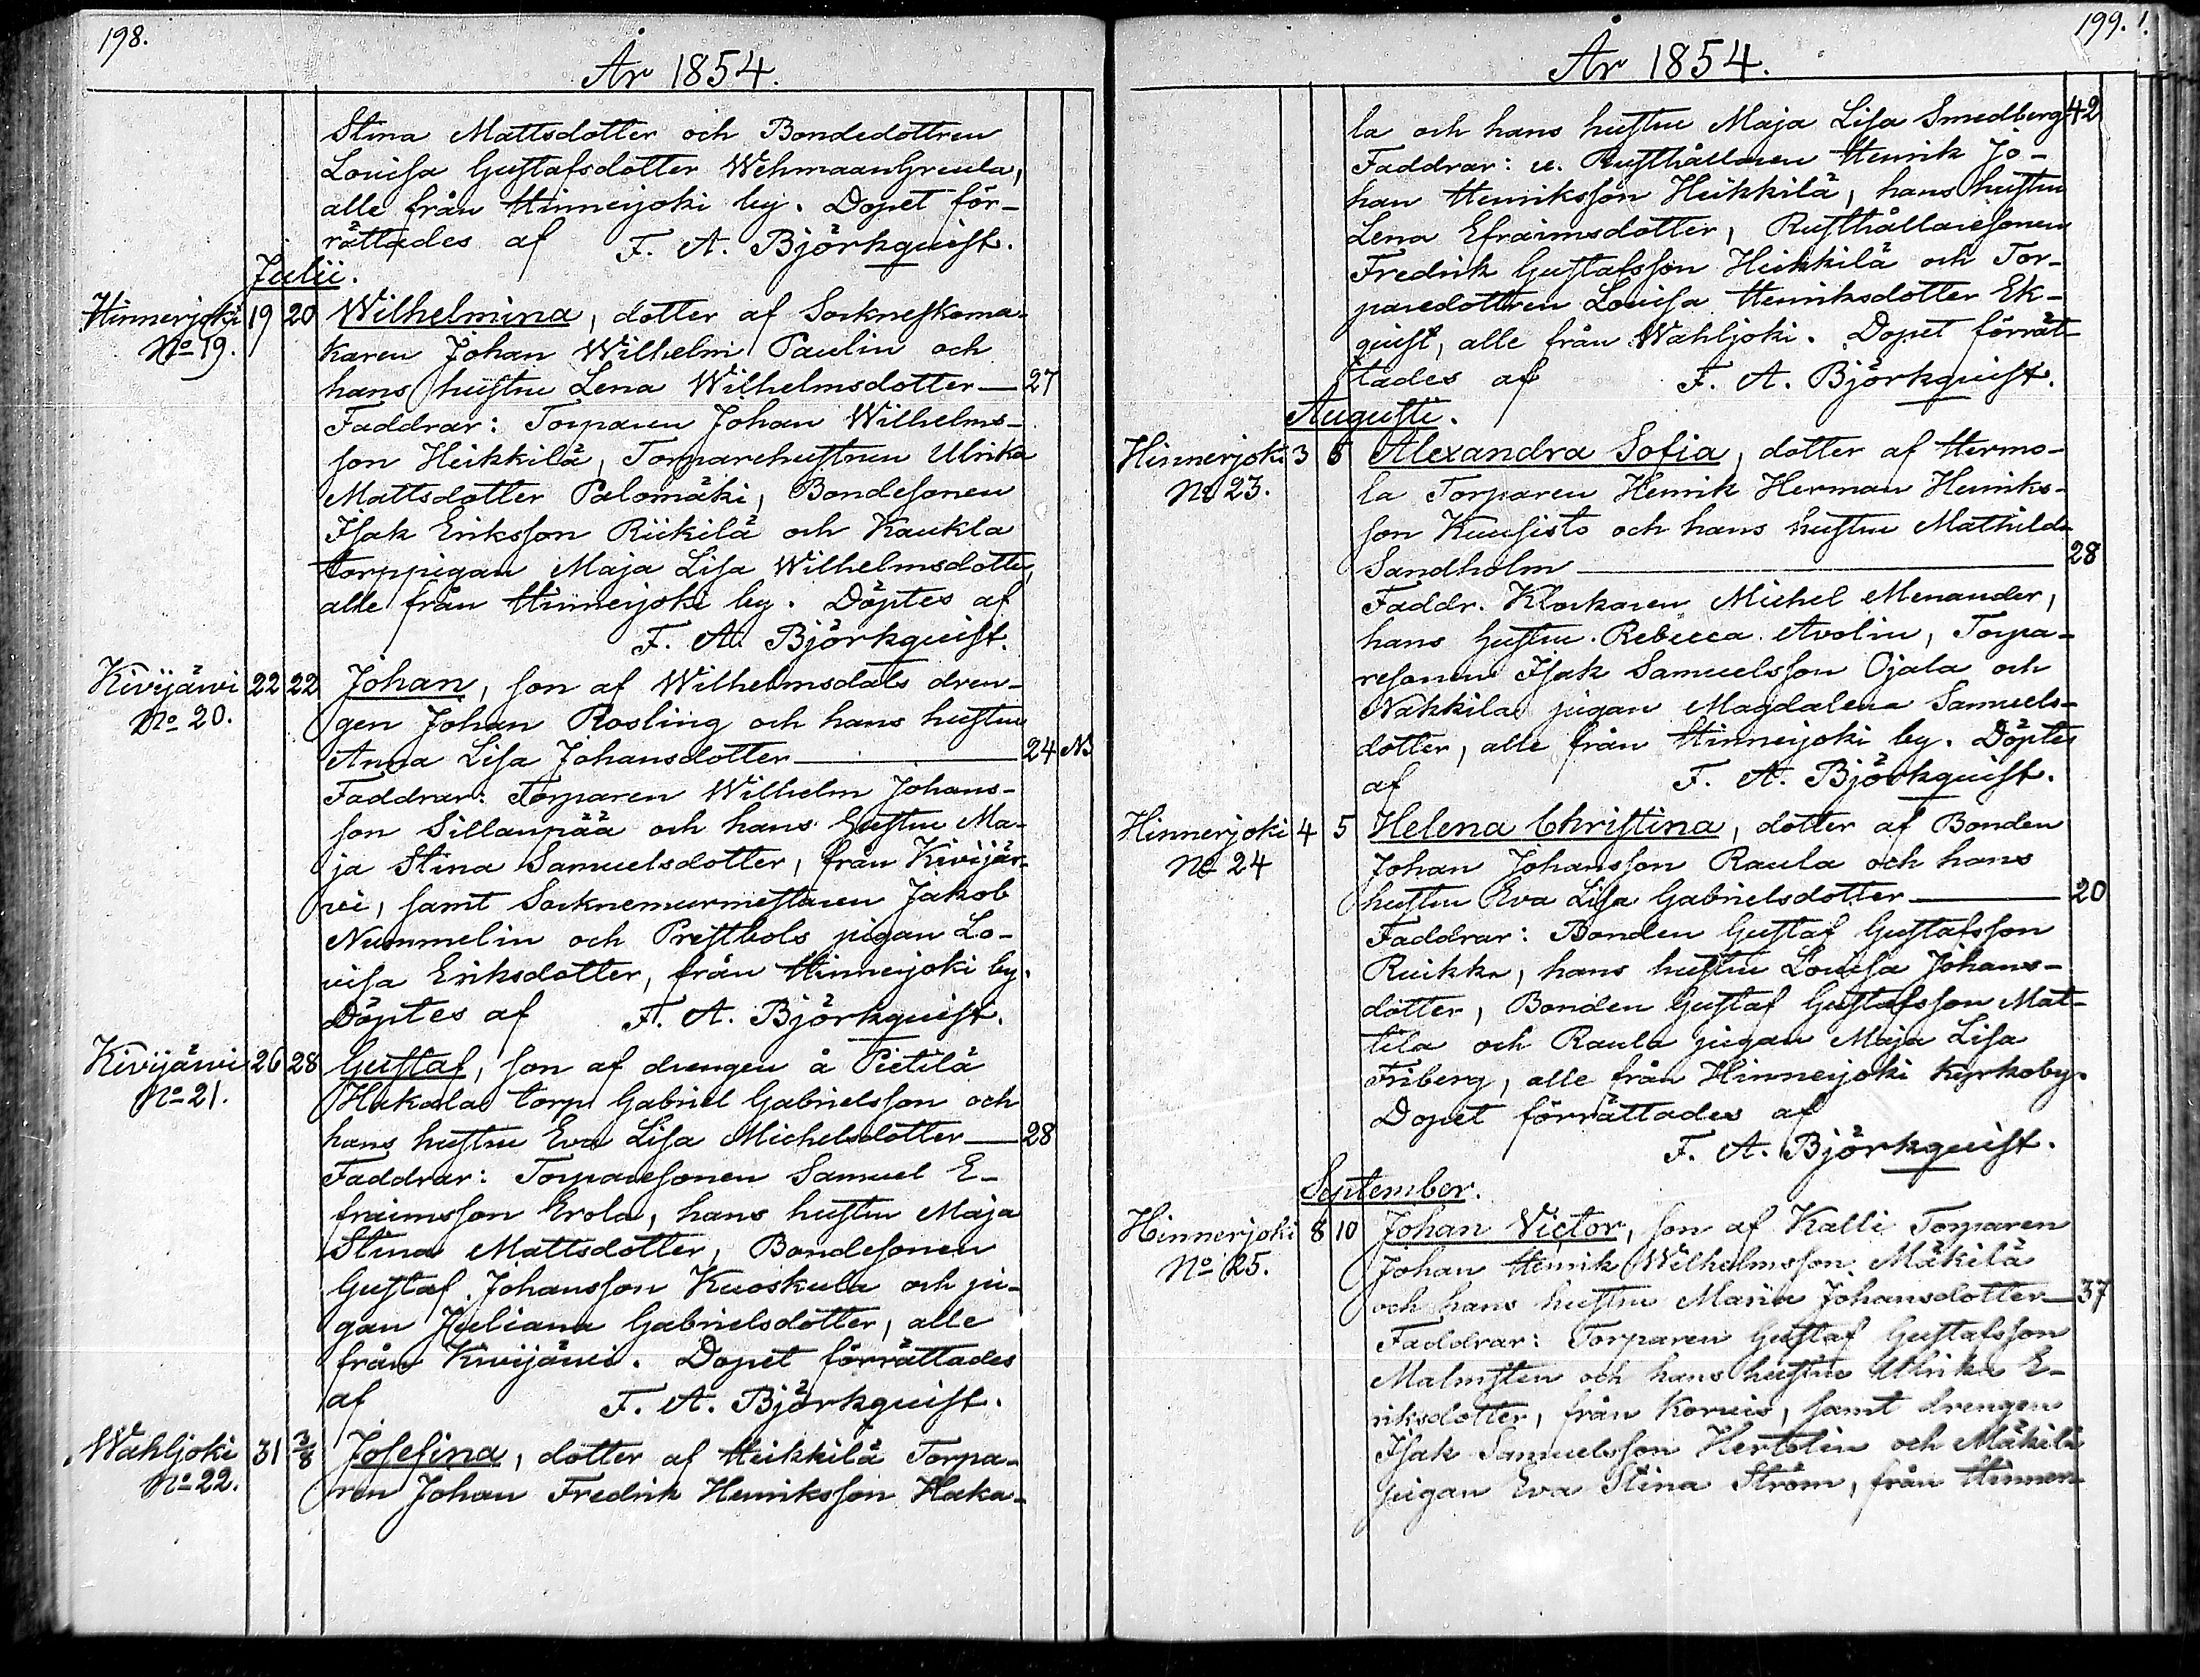 198.
År 1854.
Stina Mattsdotter och Bondedottren
Lovisa Gustafsdotter Wehmaan Greula,
alle från Hinnerjoki by. Dopet för-
rättades af F. A. Björkquist.
Julii.
Hinnerjoki 19 20 Wilhelmina, dotter af Sockneskoma-
No 19. karen Johan Wilhelm Paulin och
hans hustru Lena Wilhelmsdotter — 27
Faddrar: Torparen Johan Wilhelms-
son Heikkilä, Torparehustrun Ulrika
Mattsdotter Palomäki, Bondesonen
Isak Eriksson Riikilä och Kaukla
torppigan Maja Lisa Wilhelmsdotter,
alle från Hinnerjoki by. Döptes af
F. A. Björkquist.
Kivijärvi 22 22 Johan, son af Wilhelmsdals dren-
No 20. gen Johan Rosling och hans hustru
Anna Lisa Johansdotter — 24 NB
Faddrar: Torparen Wilhelm Johans-
son Sillanpää och hans hustru Ma-
ja Stina Samuelsdotter, från Kivijär-
vi, samt Socknemurmestaren Jakob
Nummelin och Prestbols pigan Lo-
visa Eriksdotter, från Hinnerjoki by.
Döptes af F. A. Björkquist.
Kivijärvi 26 28 Gustaf, son af drengen å Pietilä
No 21. Hakala torp Gabriel Gabrielsson och
hans hustru Eva Lisa Michelsdotter — 28
Faddrar: Torparesonen Samuel E-
fraimsson Erola, hans hustru Maja
Stina Mattsdotter, Bondesonen
Gustaf Johansson Kuoskula och pi-
gan Juliana Gabrielsdotter, alle
från Kivijärvi. Dopet förrättades
af F. A. Björkquist.
Wahljoki 31 3/8 Josefina, dotter af Heikkilä Torpa-
No 22. ren Johan Fredrik Henriksson Haka-
199.
År 1854.
la och hans hustru Maja Lisa Smedberg 42
Faddrar: u. Rusthållaren Henrik Jo-
han Henriksson Heikkilä, hans hustru
Lena Efraimsdotter, Rusthållaresonen
Fredrik Gustafsson Heikkilä och Tor-
paredottren Lovisa Henriksdotter Ek-
quist, alle från Wahljoki. Dopet förrät-
tades af F. A. Björkquist.
Augusti.
Hinnerjoki 3 6 Alexandra Sofia, dotter af Hermo-
No 23. la Torparen Henrik Herman Henriks-
son Kuusisto och hans hustru Mathilda
Sandholm — 28
Faddr. Klockaren Michel Menander,
hans hustru Rebecca Avolin, Torpa-
resonen Isak Samuelsson Ojala och
Nakkila pigan Magdalena Samuels-
dotter, alle från Hinnerjoki by. Döptes
af F. A. Björkquist.
Hinnerjoki 4 5 Helena Christina, dotter af Bonden
No 24 Johan Johansson Raula och hans
hustru Eva Lisa Gabrielsdotter — 20
Faddrar: Bonden Gustaf Gustafsson
Ruikka, hans hustru Lovisa Johans-
dotter, Bonden Gustaf Gustafsson Mat-
tila och Raula pigan Maja Lisa
Friberg, alle från Hinnerjoki Kyrkoby.
Dopet förrättades af
F. A. Björkquist.
September.
Hinnerjoki 8 10 Johan Victor, son af Kalli Torparen
No 25. Johan Henrik Wilhelmsson Mäkilä
och hans hustru Maria Johansdotter — 37
Faddrar: Torparen Gustaf Gustafsson
Malmsten och hans hustru Ulrika E-
riksdotter, från Korvis, samt drengen
Isak Samuelsson Hertolin och Mäkilä
pigan Eva Stina Ström, från Hinner-